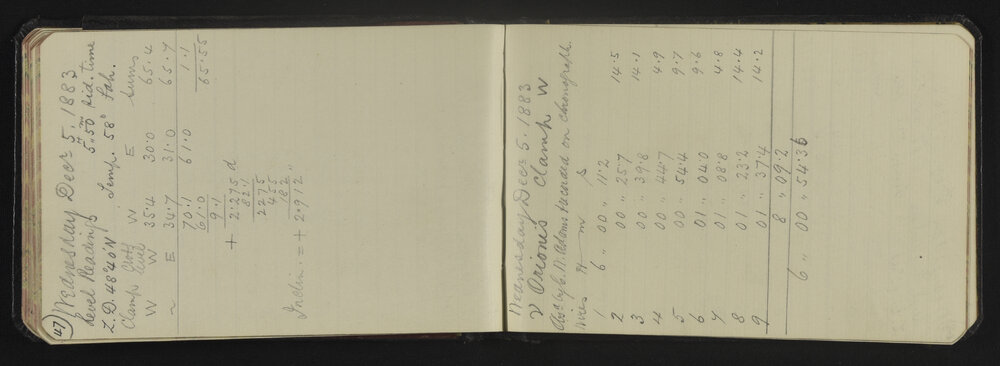 (47) Wednesday Decr 5. 1883
Level Reading 5h 50m Sid. time
Z.D. 48°40'N Temp. 58° Fah.
Clamp Clock level W E Sums
W W 35.4 30.0 65.4
~ E 34.7 31.0 65.7
70.1 61.0 1.1
61.0 65.55
9.1
+ 2.275 d
82.1
2275
455
182
Inclin. = + 2.912 "
Wednesday Decr 5. 1883
ν Orionis Clamp W
Obs. by C. D. Adams & recorded on chronograph.
Wires H m s
1 6 " 00 " 11.2 14.5
2 00 " 25.7 14.1
3 00 " 39.8 4.9
4 00 " 44.7 9.7
5 00 " 54.4 9.6
6 01 " 04.0 4.8
7 01 " 08.8 14.4
8 01 " 23.2 14.2
9 01 " 37.4
8 " 09.2
6 " 00 " 54.36